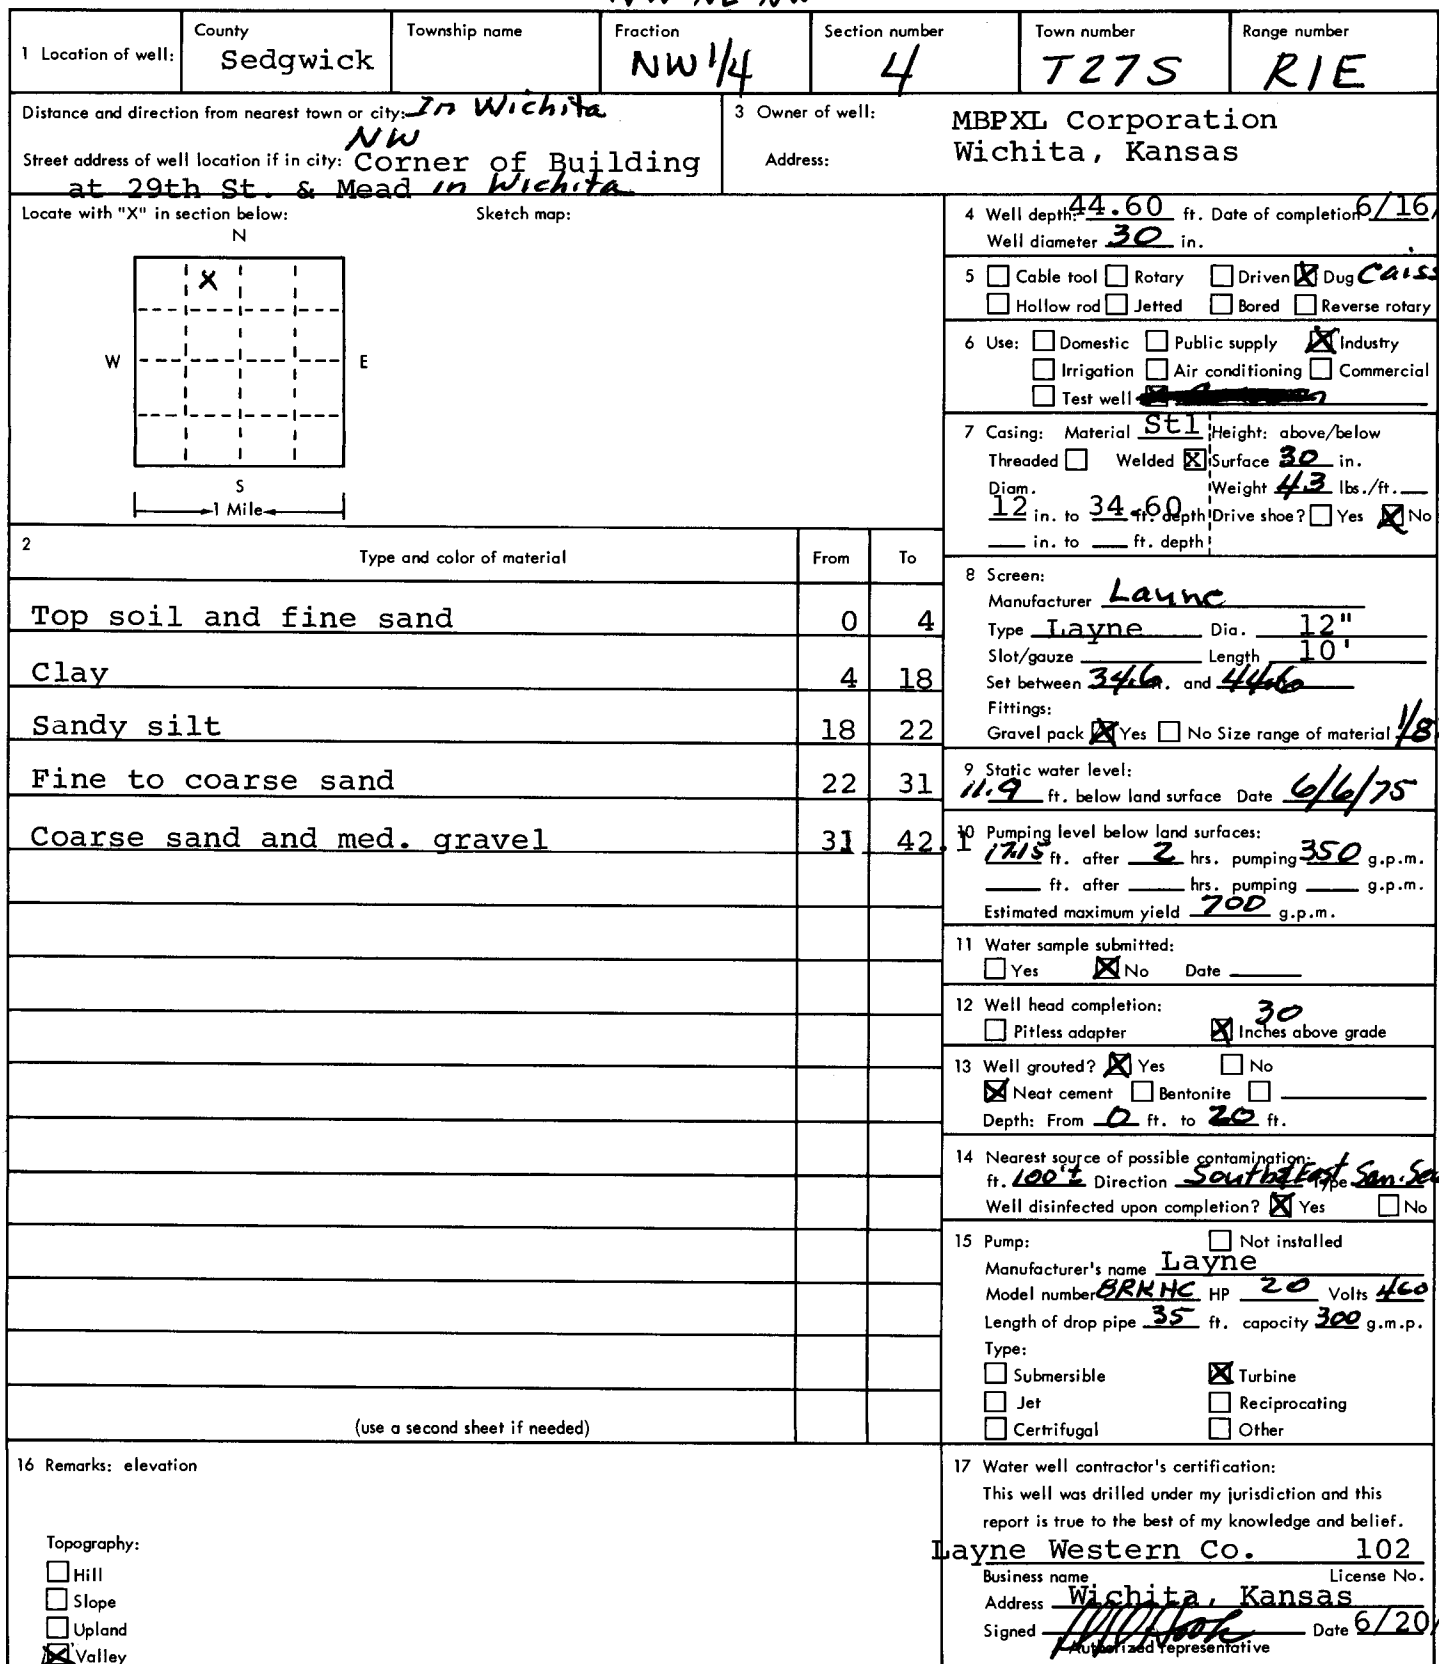 NW NE NW
1 Location of well: County Sedgwick Township name Fraction NW 1/4 Section number 4 Town number T27S Range number R1E
Distance and direction from nearest town or city: In Wichita
NW
Street address of well location if in city: Corner of Building
at 29th St. & Mead in Wichita
3 Owner of well: MBPXL Corporation
Address: Wichita, Kansas
Locate with "X" in section below: Sketch map:
N
X
W E
S
1 Mile
2 Type and color of material From To
Top soil and fine sand 0 4
Clay 4 18
Sandy silt 18 22
Fine to coarse sand 22 31
Coarse sand and med. gravel 31 42.1
(use a second sheet if needed)
4 Well depth: 44.60 ft. Date of completion 6/16/
Well diameter 30 in.
5 Cable tool Rotary Driven X Dug Caiss
Hollow rod Jetted Bored Reverse rotary
6 Use: Domestic Public supply X Industry
Irrigation Air conditioning Commercial
Test well
7 Casing: Material Stl Height: above/below
Threaded Welded X Surface 30 in.
Diam. Weight 43 lbs./ft.
12 in. to 34.60 ft. depth Drive shoe? Yes X No
in. to ft. depth
8 Screen:
Manufacturer Layne
Type Layne Dia. 12"
Slot/gauze Length 10'
Set between 34.6 ft. and 44.6
Fittings:
Gravel pack X Yes No Size range of material 1/8
9 Static water level:
11.9 ft. below land surface Date 6/6/75
10 Pumping level below land surfaces:
17.15 ft. after 2 hrs. pumping 350 g.p.m.
ft. after hrs. pumping g.p.m.
Estimated maximum yield 700 g.p.m.
11 Water sample submitted:
Yes X No Date
12 Well head completion:
Pitless adapter X 30 Inches above grade
13 Well grouted? X Yes No
X Neat cement Bentonite
Depth: From 0 ft. to 20 ft.
14 Nearest source of possible contamination:
ft. 100'± Direction South & East Type San. Se
Well disinfected upon completion? X Yes No
15 Pump: Not installed
Manufacturer's name Layne
Model number 8RKHC HP 20 Volts 460
Length of drop pipe 35 ft. capocity 300 g.m.p.
Type:
Submersible X Turbine
Jet Reciprocating
Certrifugal Other
16 Remarks: elevation
Topography:
Hill
Slope
Upland
X Valley
17 Water well contractor's certification:
This well was drilled under my jurisdiction and this
report is true to the best of my knowledge and belief.
Layne Western Co. 102
Business name License No.
Address Wichita, Kansas
Signed Date 6/20/
Authorized representative